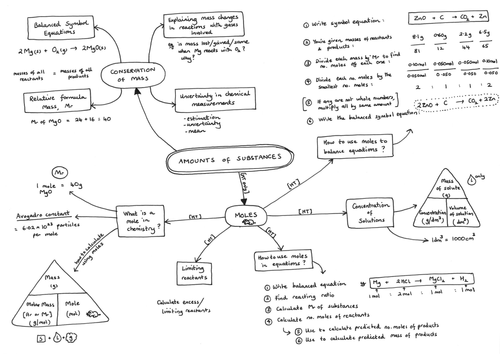 Balanced Symbol Equations
2Mg(s) + O₂(g) → 2MgO(s)
masses of all reactants = masses of all products
Relative Formula Mass, Mr
Mr of MgO = 24 + 16 = 40
CONSERVATION OF MASS
Explaining mass changes in reactions with gases involved
Eg is mass lost/gained/same when Mg reacts with O₂?
Why?
Uncertainty in chemical measurements
- estimation
- uncertainty
- mean
AMOUNTS OF SUBSTANCES
[HT only]
MOLES
① Write symbol equation:
ZnO + C → CO₂ + Zn
② You're given masses of reactants & products:
8.1g 0.60g 2.2g 6.5g
③ Divide each mass by Mr to find no. moles of each one:
81 12 44 65
0.10mol 0.050mol 0.050mol 0.10mol
④ Divide each no. moles by the smallest no. moles:
0.050mol 0.050 0.050 0.050
2 : 1 : 1 : 2
⑤ If any are not whole numbers, multiply all by same amount
⑥ Write the balanced symbol equation:
2ZnO + C → CO₂ + 2Zn
How to use moles to balance equations?
[HT]
Mr
1 mole MgO = 40g
Avogadro constant
= 6.02 × 10²³ particles per mole
What is a mole in chemistry?
[HT]
how to calculate using moles
Mass (g)
Molar Mass (Ar or Mr) (g/mol)
Mole (mol)
[HT]
Limiting reactants
Calculate excess/limiting reactants
[HT]
How to use moles in equations?
① Write balanced equation
② Find reacting ratio
③ Calculate Mr of substances
④ Calculate no. moles of reactants
⑤ Use to calculate predicted no. moles of products
⑥ Use to calculate predicted mass of products
Mg + 2HCl → MgCl₂ + H₂
1mol : 2mol : 1mol : 1mol
[HT]
Concentration of Solutions
Mass of solute (g)
Concentration (g/dm³)
Volume of solution (dm³)
only
1dm³ = 1000cm³